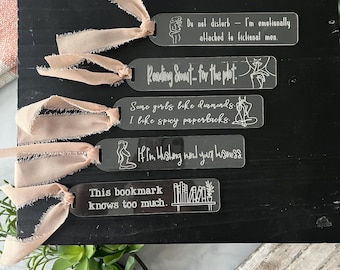 Do not disturb — I'm emotionally
attached to fictional men.
Reading Smut... for the plot.
Some girls like diamonds.
I like spicy paperbacks.
If I'm blushing mind your business.
This bookmark
knows too much.